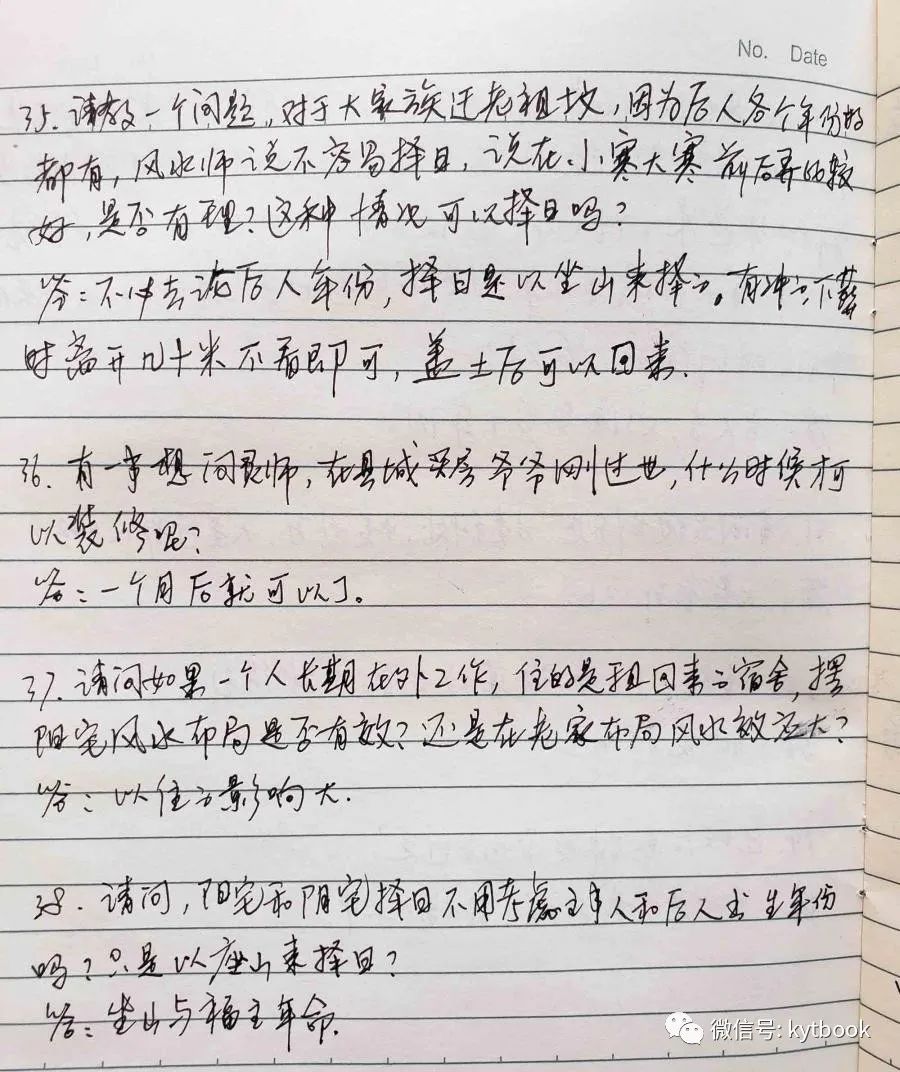 No. Date
35. 请教一个问题，对于大家族迁老祖坟，因为后人各个年份的
都有，风水师说不容易择日，说在小寒大寒前后弄的较
好，是否有理？这种情况可以择日吗？
答：不什去论后人年份，择日是以坐山来择的。有冲的下葬
时离开几十米不看即可，盖土后可以回来.
36. 有一事想问老师，在县城买房爷爷刚过世，什么时候才可
以装修呢？
答：一个月后就可以了。
37. 请问如果一个人长期在外工作，住的是租回来的宿舍，摆
阳宅风水布局是否有效？还是在老家布局风水效应大？
答：以住的影响大.
38. 请问，阳宅和阴宅择日不用考虑主事人和后人出生年份
吗？只是以座山来择日？
答：坐山与福主年命.
微信号: kytbook